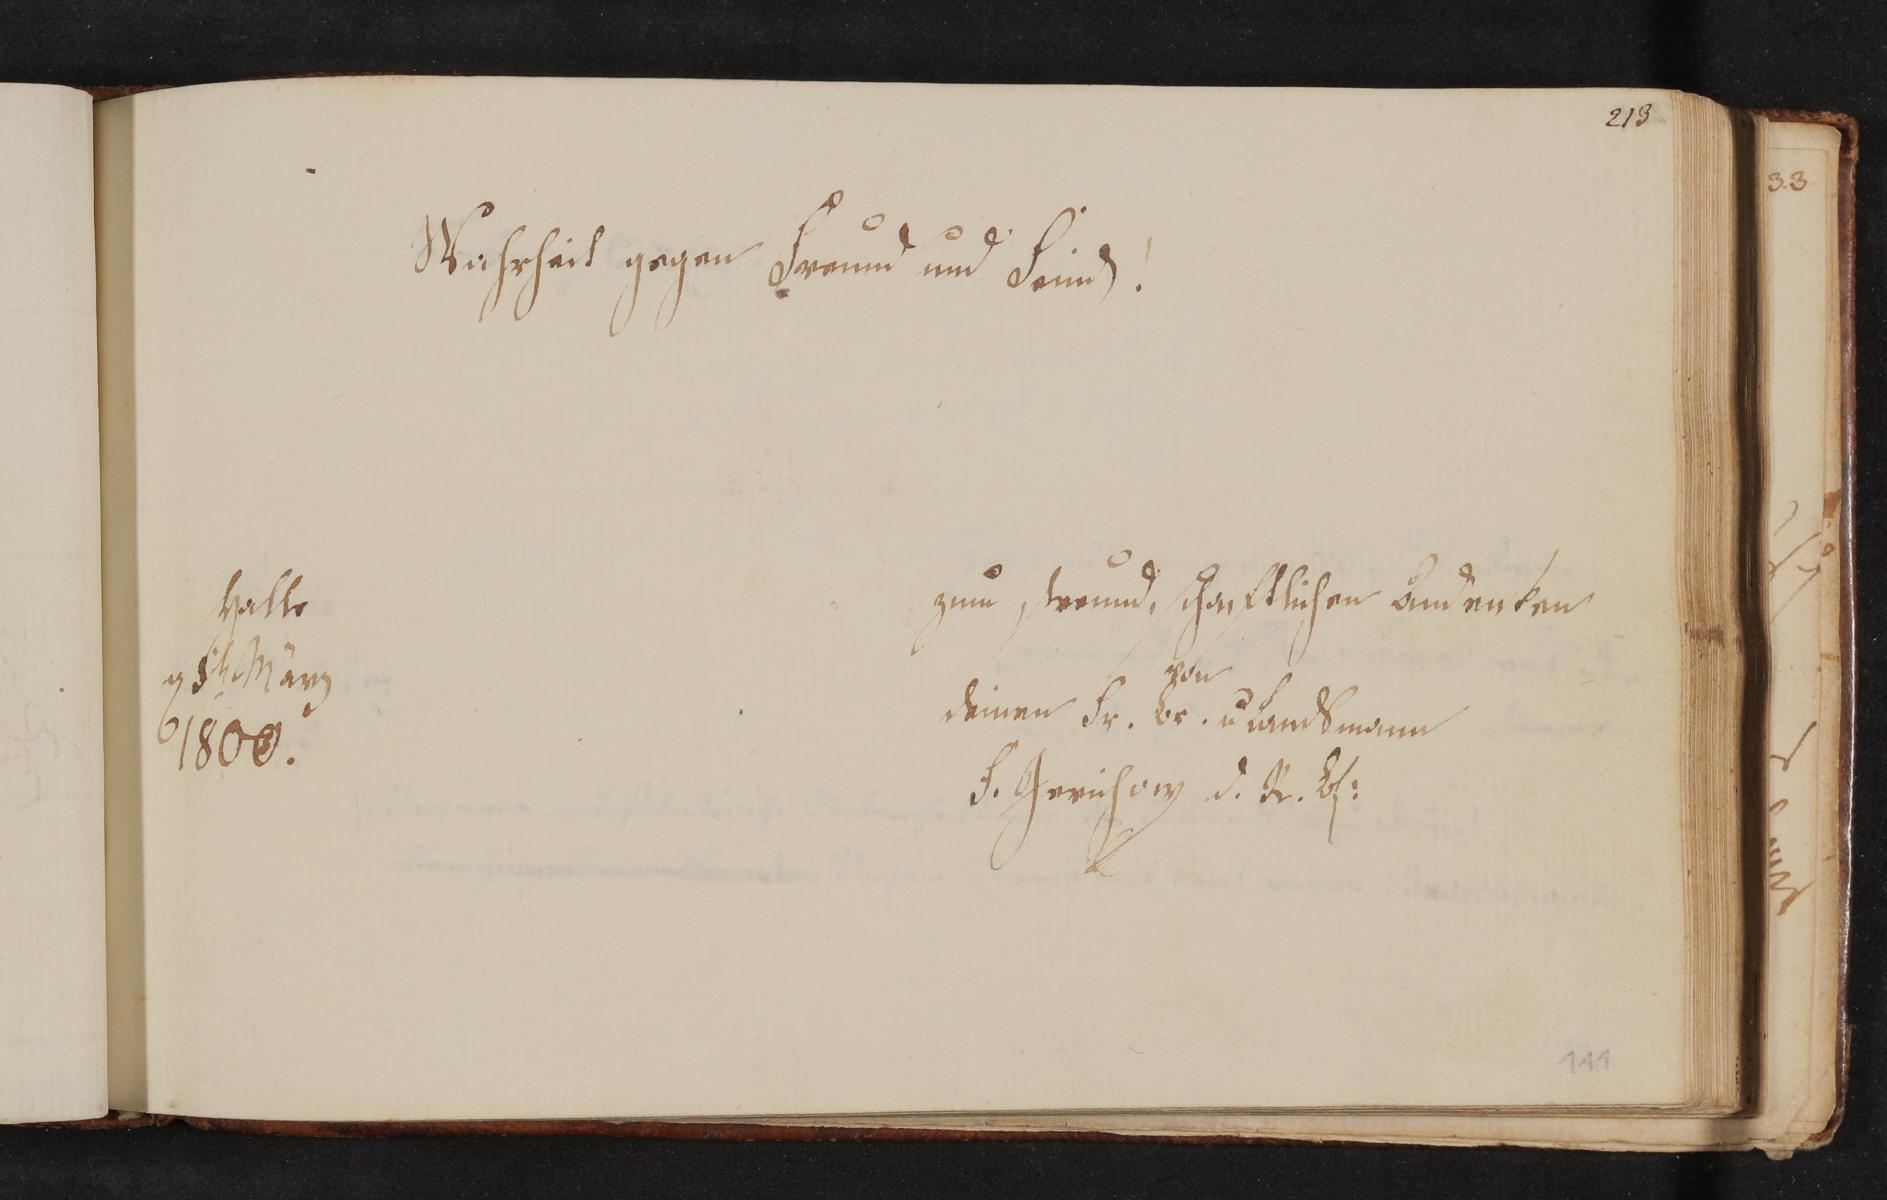 213
33
Wahrheit gegen Freund und Feind!
Halle
März
1800.
zum freundschaftlichen Andenken
von
deinen Fr. Br. u Landsmann
F. Gerichow d. R. Bf:
141